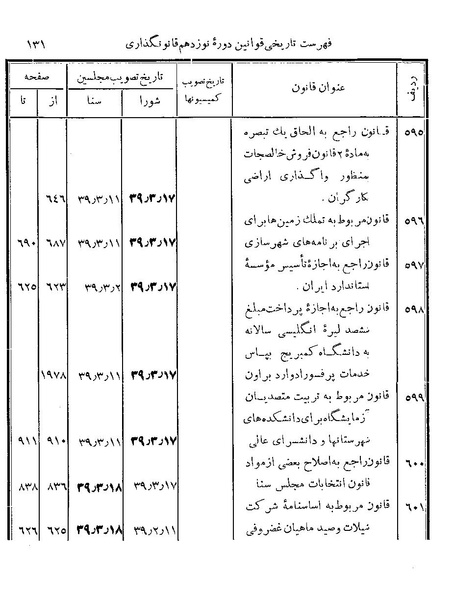 فهرست تاریخی قوانین دورهٔ نوزدهم قانونگذاری ۱۳۱
ردیف عنوان قانون تاریخ تصویب کمیسیونها تاریخ تصویب مجلسین صفحه
شورا سنا از تا
۵۹۵ قانون راجع به الحاق یك تبصره
بمادهٔ ۲ قانون فروش خالصجات
بمنظور واگذاری اراضی
بکارگران . ۳۹٫۳٫۱۷ ۳۹٫۳٫۱۱ ۶۴۶
۵۹۶ قانون مربوط به تملك زمین‌ها برای
اجرای برنامه‌های شهرسازی ۳۹٫۳٫۱۷ ۳۹٫۳٫۱۱ ۶۸۷ ۶۹۰
۵۹۷ قانون راجع به اجازهٔ تأسیس مؤسسهٔ
استاندارد ایران . ۳۹٫۳٫۱۷ ۳۹٫۳٫۲ ۶۲۳ ۶۲۵
۵۹۸ قانون راجع به اجازهٔ پرداخت مبلغ
ششصد لیرهٔ انگلیسی سالانه
به دانشگاه کمبریج بپاس
خدمات پرفسور ادوارد براون ۳۹٫۳٫۱۷ ۳۹٫۳٫۱۱ ۱۹۷۸
۵۹۹ قانون مربوط به تربیت متصدیان
آزمایشگاه برای دانشکده‌های
شهرستانها و دانشسرای عالی ۳۹٫۳٫۱۷ ۳۹٫۳٫۱۱ ۹۱۰ ۹۱۱
۶۰۰ قانون راجع به اصلاح بعضی از مواد
قانون انتخابات مجلس سنا ۳۹٫۳٫۱۷ ۳۹٫۳٫۱۸ ۸۳۶ ۸۳۸
۶۰۱ قانون مربوط به اساسنامهٔ شرکت
شیلات و صید ماهیان غضروفی ۳۹٫۲٫۱۱ ۳۹٫۳٫۱۸ ۶۲۵ ۶۲۶